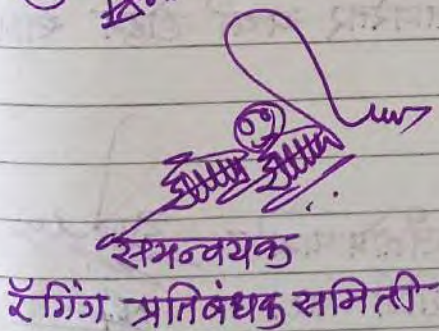 समन्वयक
रॅगिंग प्रतिबंधक समिती